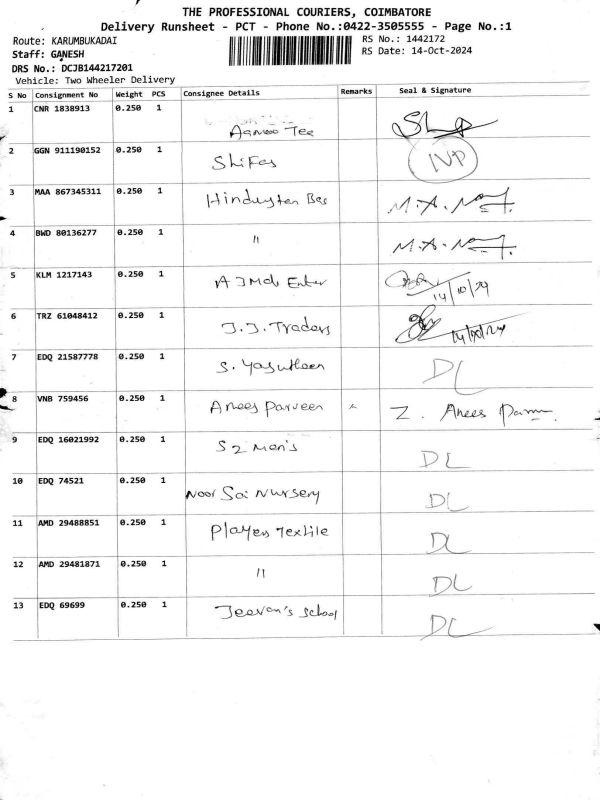 THE PROFESSIONAL COURIERS, COIMBATORE
Delivery Runsheet - PCT - Phone No.:0422-3505555 - Page No.:1
Route: KARUMBUKADAI RS No.: 1442172
Staff: GANESH RS Date: 14-Oct-2024
DRS No.: DCJB144217201
Vehicle: Two Wheeler Delivery
S No Consignment No Weight PCS Consignee Details Remarks Seal & Signature
1 CNR 1838913 0.250 1 Tee
2 GGN 911190152 0.250 1 Shifas IVP
3 MAA 867345311 0.250 1 Hindustan Bas M.A.
4 BWD 80136277 0.250 1 " M.A.
5 KLM 1217143 0.250 1 Enter 14/10/24
6 TRZ 61048412 0.250 1 J.J. Traders 14/10/24
7 EDQ 21587778 0.250 1 S. DL
8 VNB 759456 0.250 1 Anees Parveen x Z. Anees
9 EDQ 16021992 0.250 1 S2 Men's DL
10 EDQ 74521 0.250 1 Noor Sai Nursery DL
11 AMD 29488851 0.250 1 Players Textile DL
12 AMD 29481871 0.250 1 " DL
13 EDQ 69699 0.250 1 Jeevan's School DL